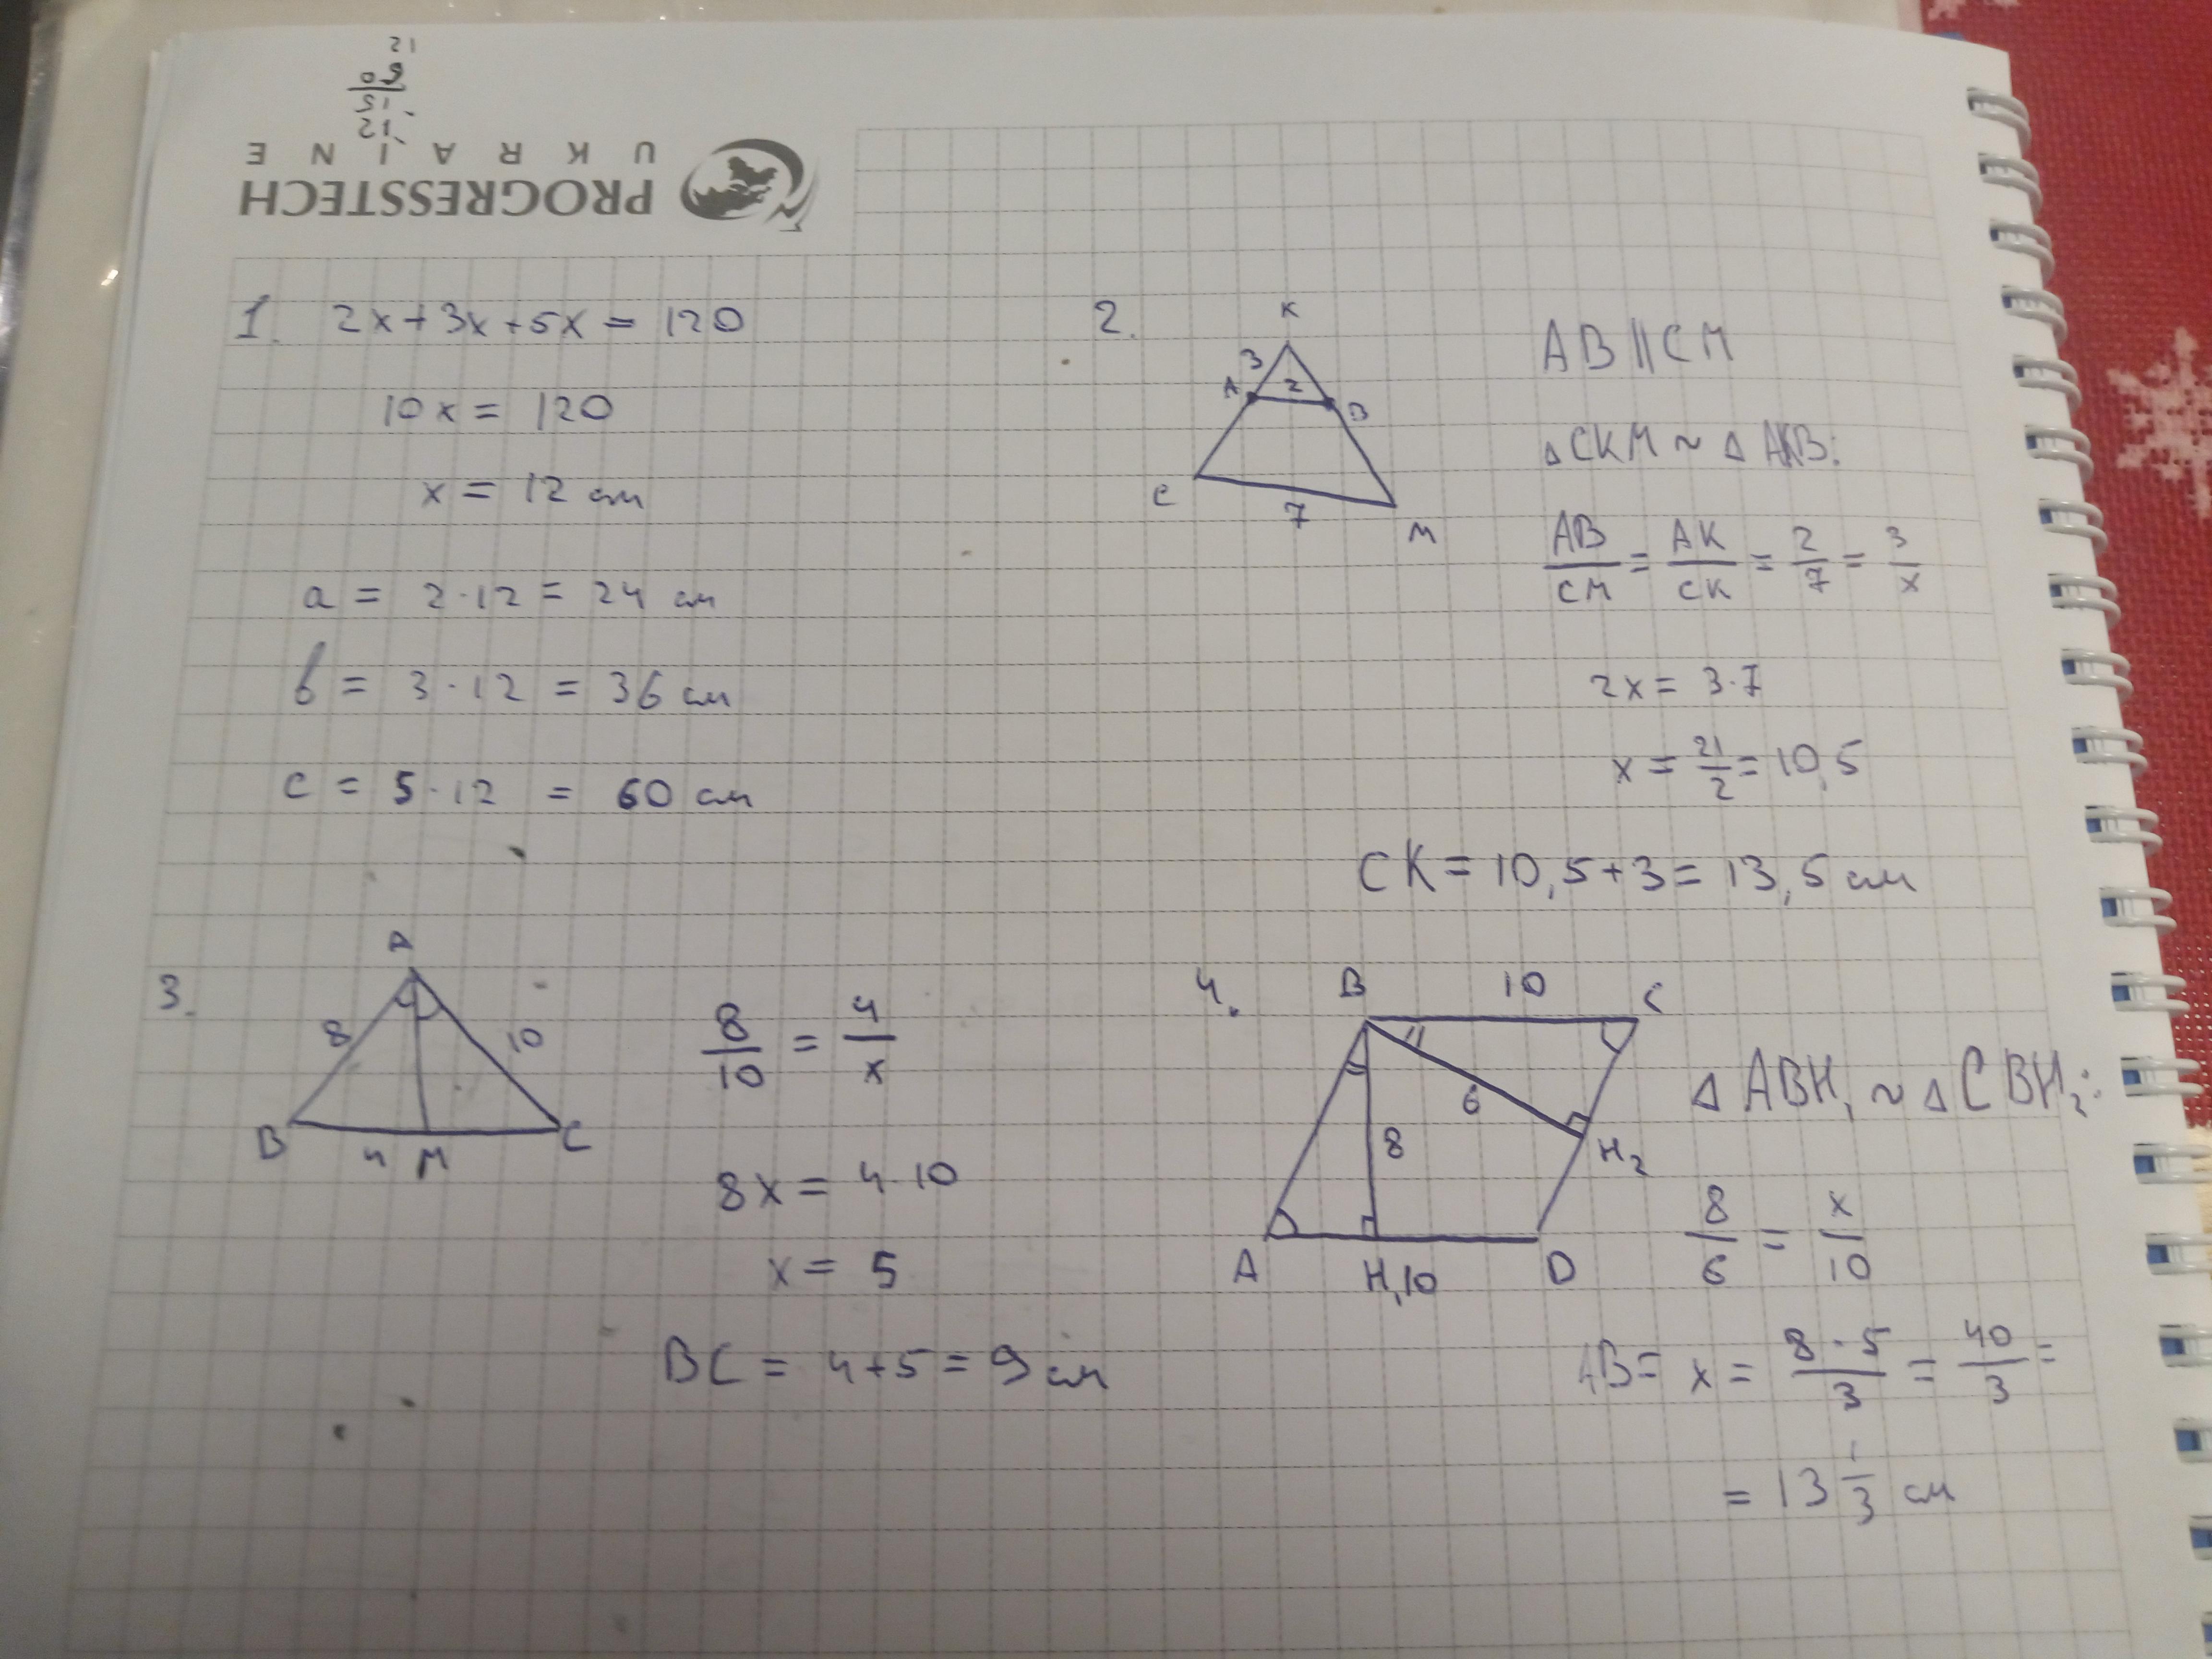 12
60
15
12
UKRAINE
PROGRESSTECH
1. 2x+3x+5x = 120
10x = 120
x = 12 см
a = 2·12 = 24 см
b = 3·12 = 36 см
c = 5·12 = 60 см
2.
K
3
A
2
B
C
7
M
AB||CM
△CKM ~ △AKB:
AB/CM = AK/CK = 2/7 = 3/x
2x = 3·7
x = 21/2 = 10,5
CK = 10,5+3 = 13,5 см
3.
A
8
10
B
4
M
C
8/10 = 4/x
8x = 4·10
x = 5
BC = 4+5 = 9 см
4.
B
10
C
6
8
H₂
A
H₁
10
D
△ABH₁ ~ △CBH₂:
8/6 = x/10
AB = x = 8·5/3 = 40/3 =
= 13 1/3 см